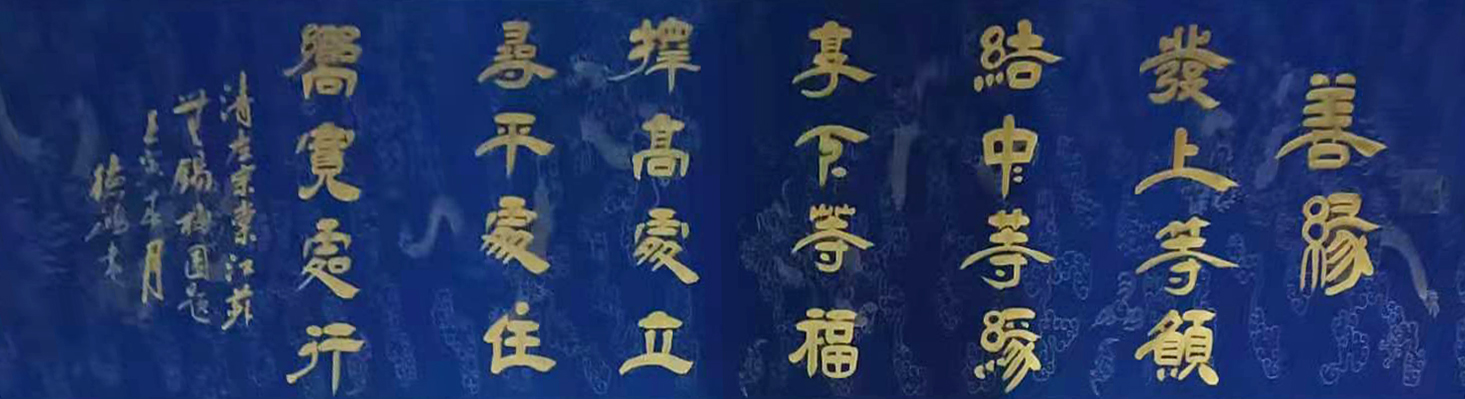 善緣
發上等願
結中等緣
享下等福
擇高處立
尋平處住
嚮寬處行
清左宗棠江蘇
無錫梅園題
壬寅 月
德